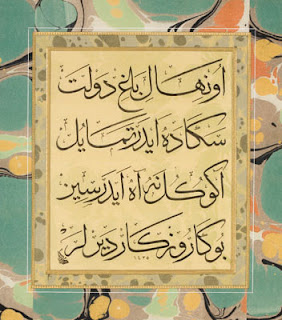 او نهال باغ دولت
سڭا ده ايدر تمايل
اكوڭل نه آه ايدرسين
بوڭا روزكار ديرلر
١٤٣٥